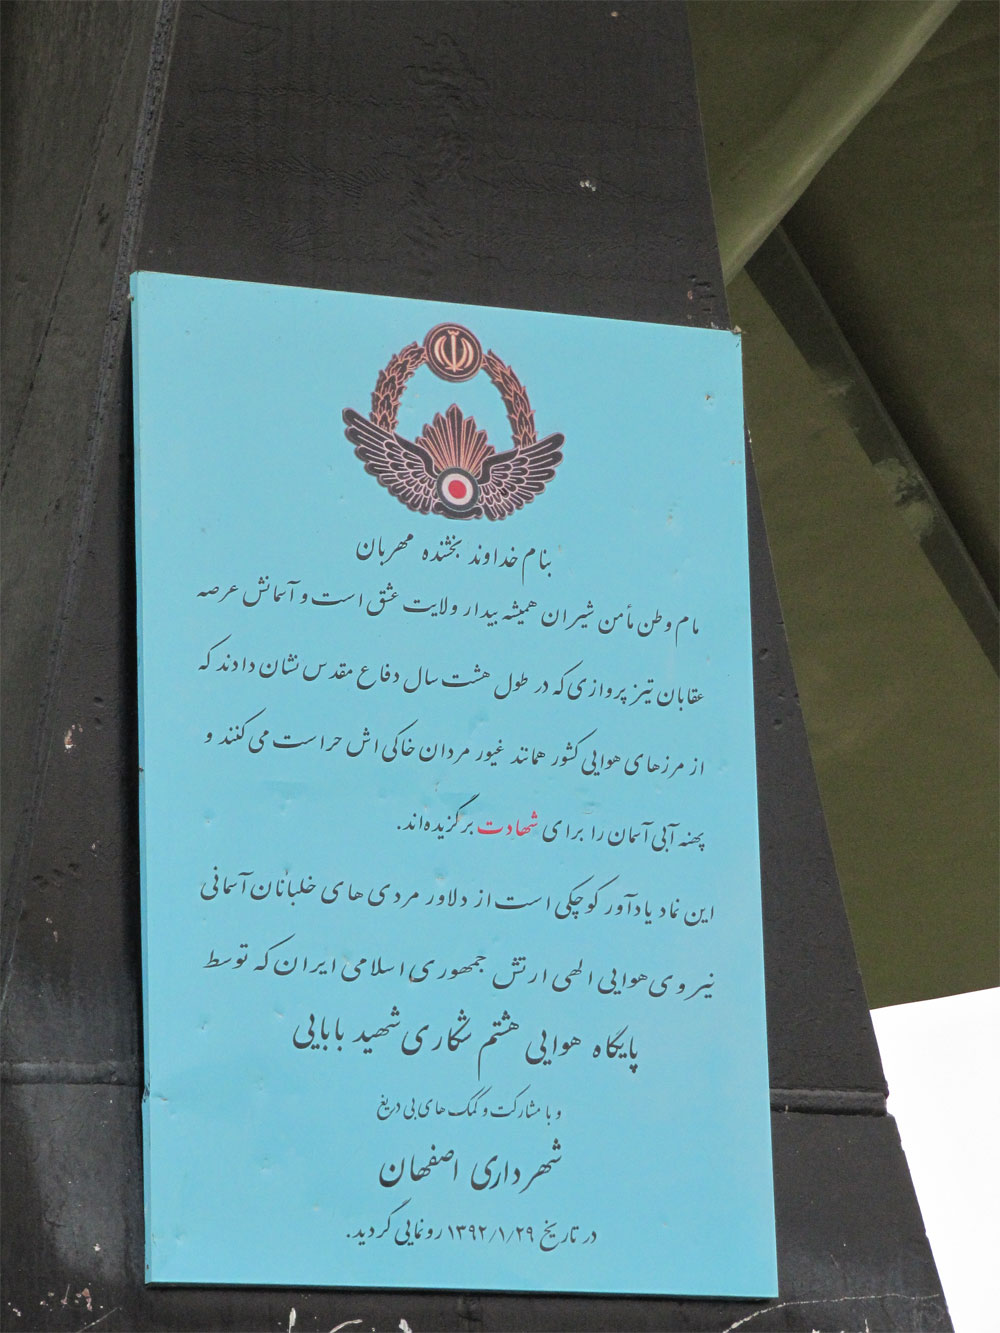 بنام خداوند بخشنده مهربان
مام وطن مأمن شیران همیشه بیدار ولایت عشق است و آسمانش عرصه
عقابان تیز پروازی که در طول هشت سال دفاع مقدس نشان دادند که
از مرزهای هوایی کشور همانند غیور مردان خاکی اش حراست می کنند و
پهنه آبی آسمان را برای شهادت برگزیده‌اند.
این نماد یادآور کوچکی است از دلاور مردی های خلبانان آسمانی
نیروی هوایی الهی ارتش جمهوری اسلامی ایران که توسط
پایگاه هوایی هشتم شکاری شهید بابایی
و با مشارکت و کمک های بی دریغ
شهرداری اصفهان
در تاریخ ۱۳۹۲/۱/۲۹ رونمایی گردید.